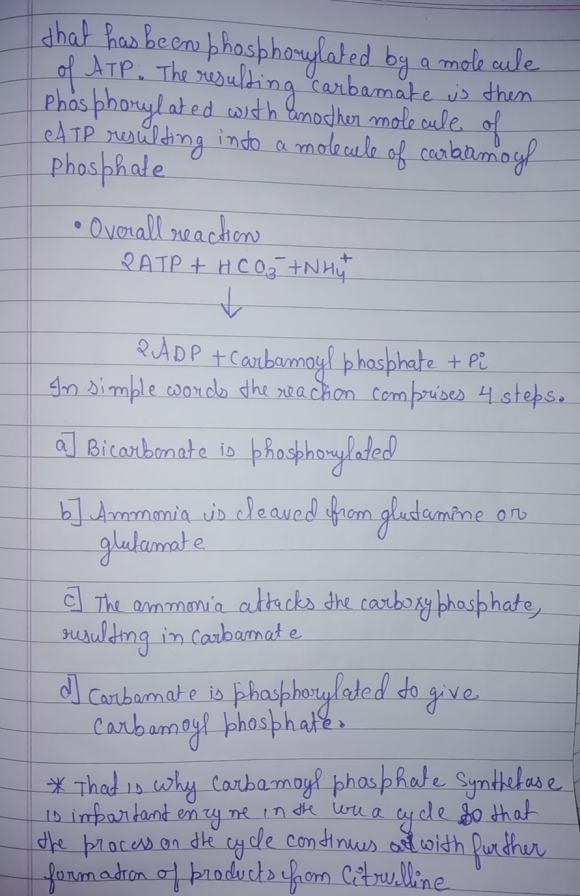 that has been phosphorylated by a molecule
of ATP. The resulting carbamate is then
Phosphorylated with another molecule of
ATP resulting into a molecule of carbamoyl
Phosphate
• Overall reaction
2ATP + HCO₃⁻ + NH₄⁺
↓
2ADP + Carbamoyl phosphate + Pi
In simple words the reaction comprises 4 steps.
a] Bicarbonate is phosphorylated
b] Ammonia is cleaved from glutamine or
glutamate
c] The ammonia attacks the carboxyphasphate,
resulting in carbamate
d] Carbamate is phasphorylated to give
carbamoyl phosphate.
* That is why Carbamoyl phasphate Synthetase
is impartant enzyne in the urea cycle so that
the process on the cycle continues with further
formation of products from Citrulline